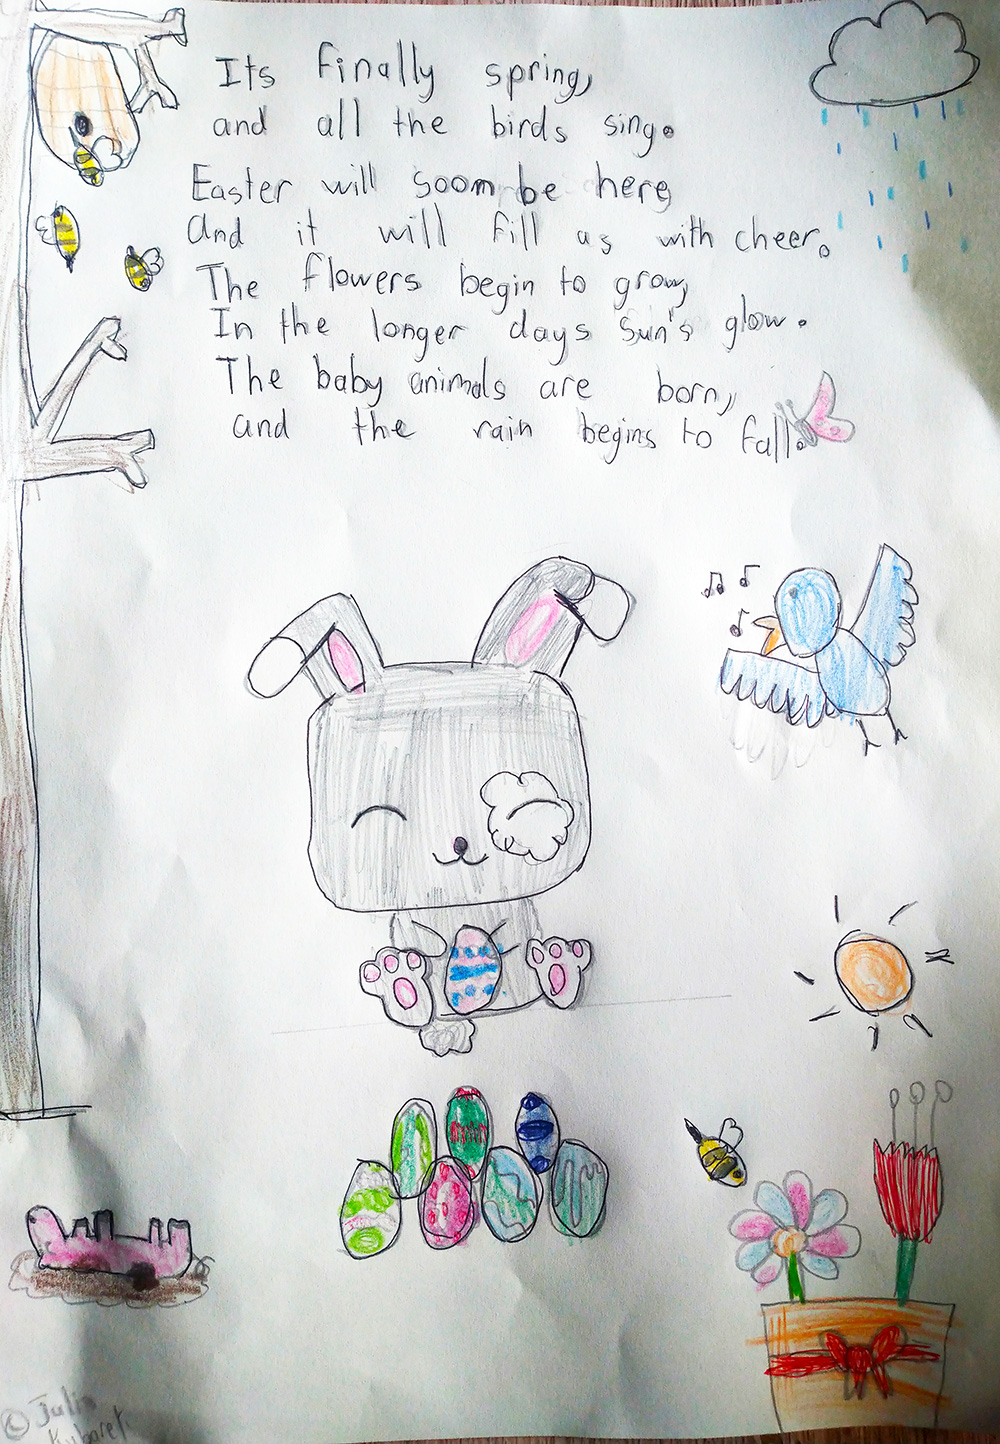 Its finally spring,
and all the birds sing.
Easter will soom be here,
and it will fill as with cheer.
The flowers begin to grow,
In the longer days sun's glow.
The baby animals are born,
and the rain begins to fall.
© Julia